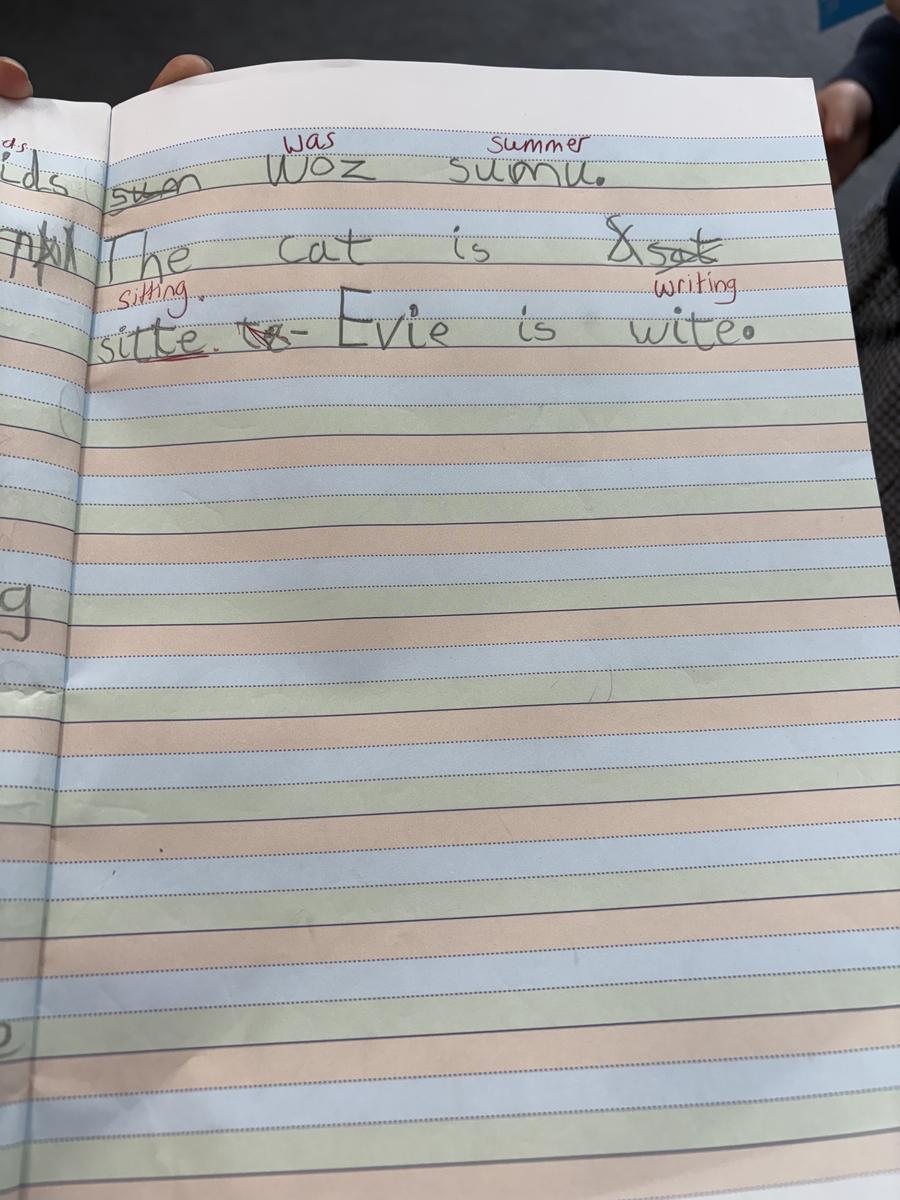 was summer
ids sum woz sumu.
The cat is sat
sitting. writing
sitte. Evie is wite.
g